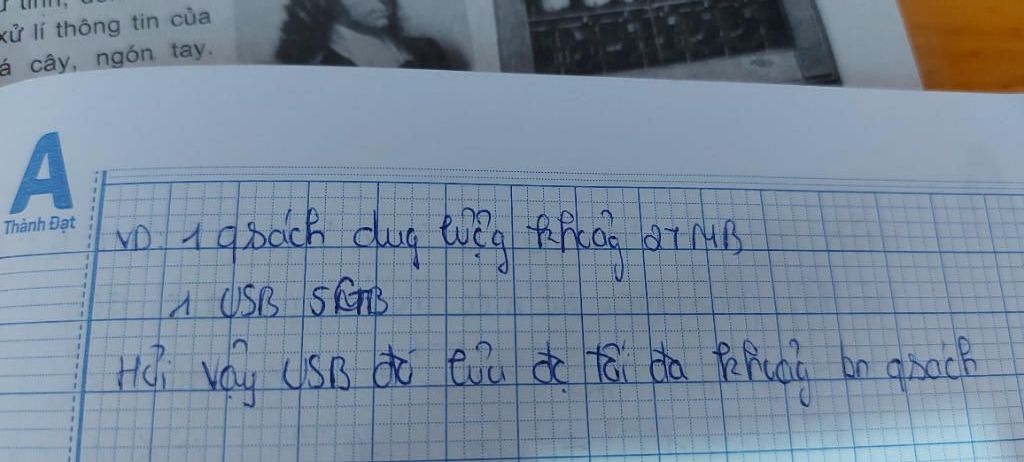 xử lí thông tin của
á cây, ngón tay.
A
Thành Đạt
VD: 1 qsách dug lượg khoảg 27 MB
1 USB 5 GB
Hỏi vậy USB đó lưu đc tối đa khoảg bn qsách